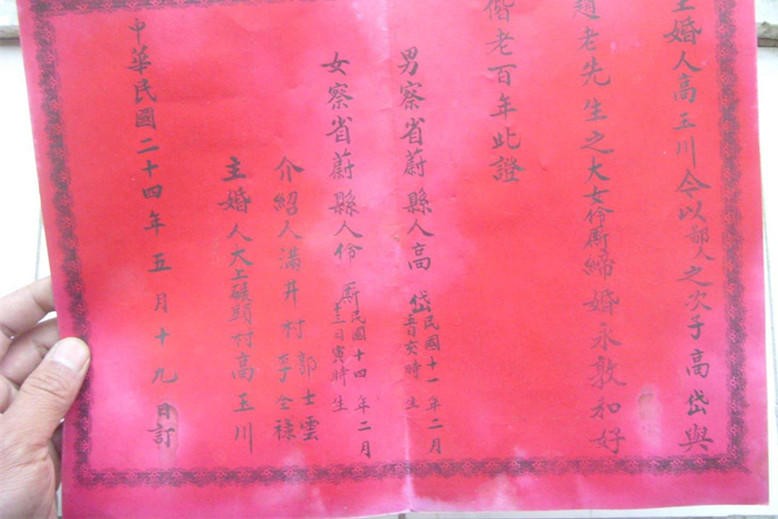 主婚人高玉川今以鄙人之次子高岱與
趙老先生之大女伶 締婚永敦和好
偕老百年此證
男察省蔚縣人高 岱民國十一年二月 日亥時生
女察省蔚縣人伶 民國十四年二月 日寅時生
介紹人滿井村 郭士雲 李全祿
主婚人大上碾頭村高玉川
中華民國二十四年五月十九日訂